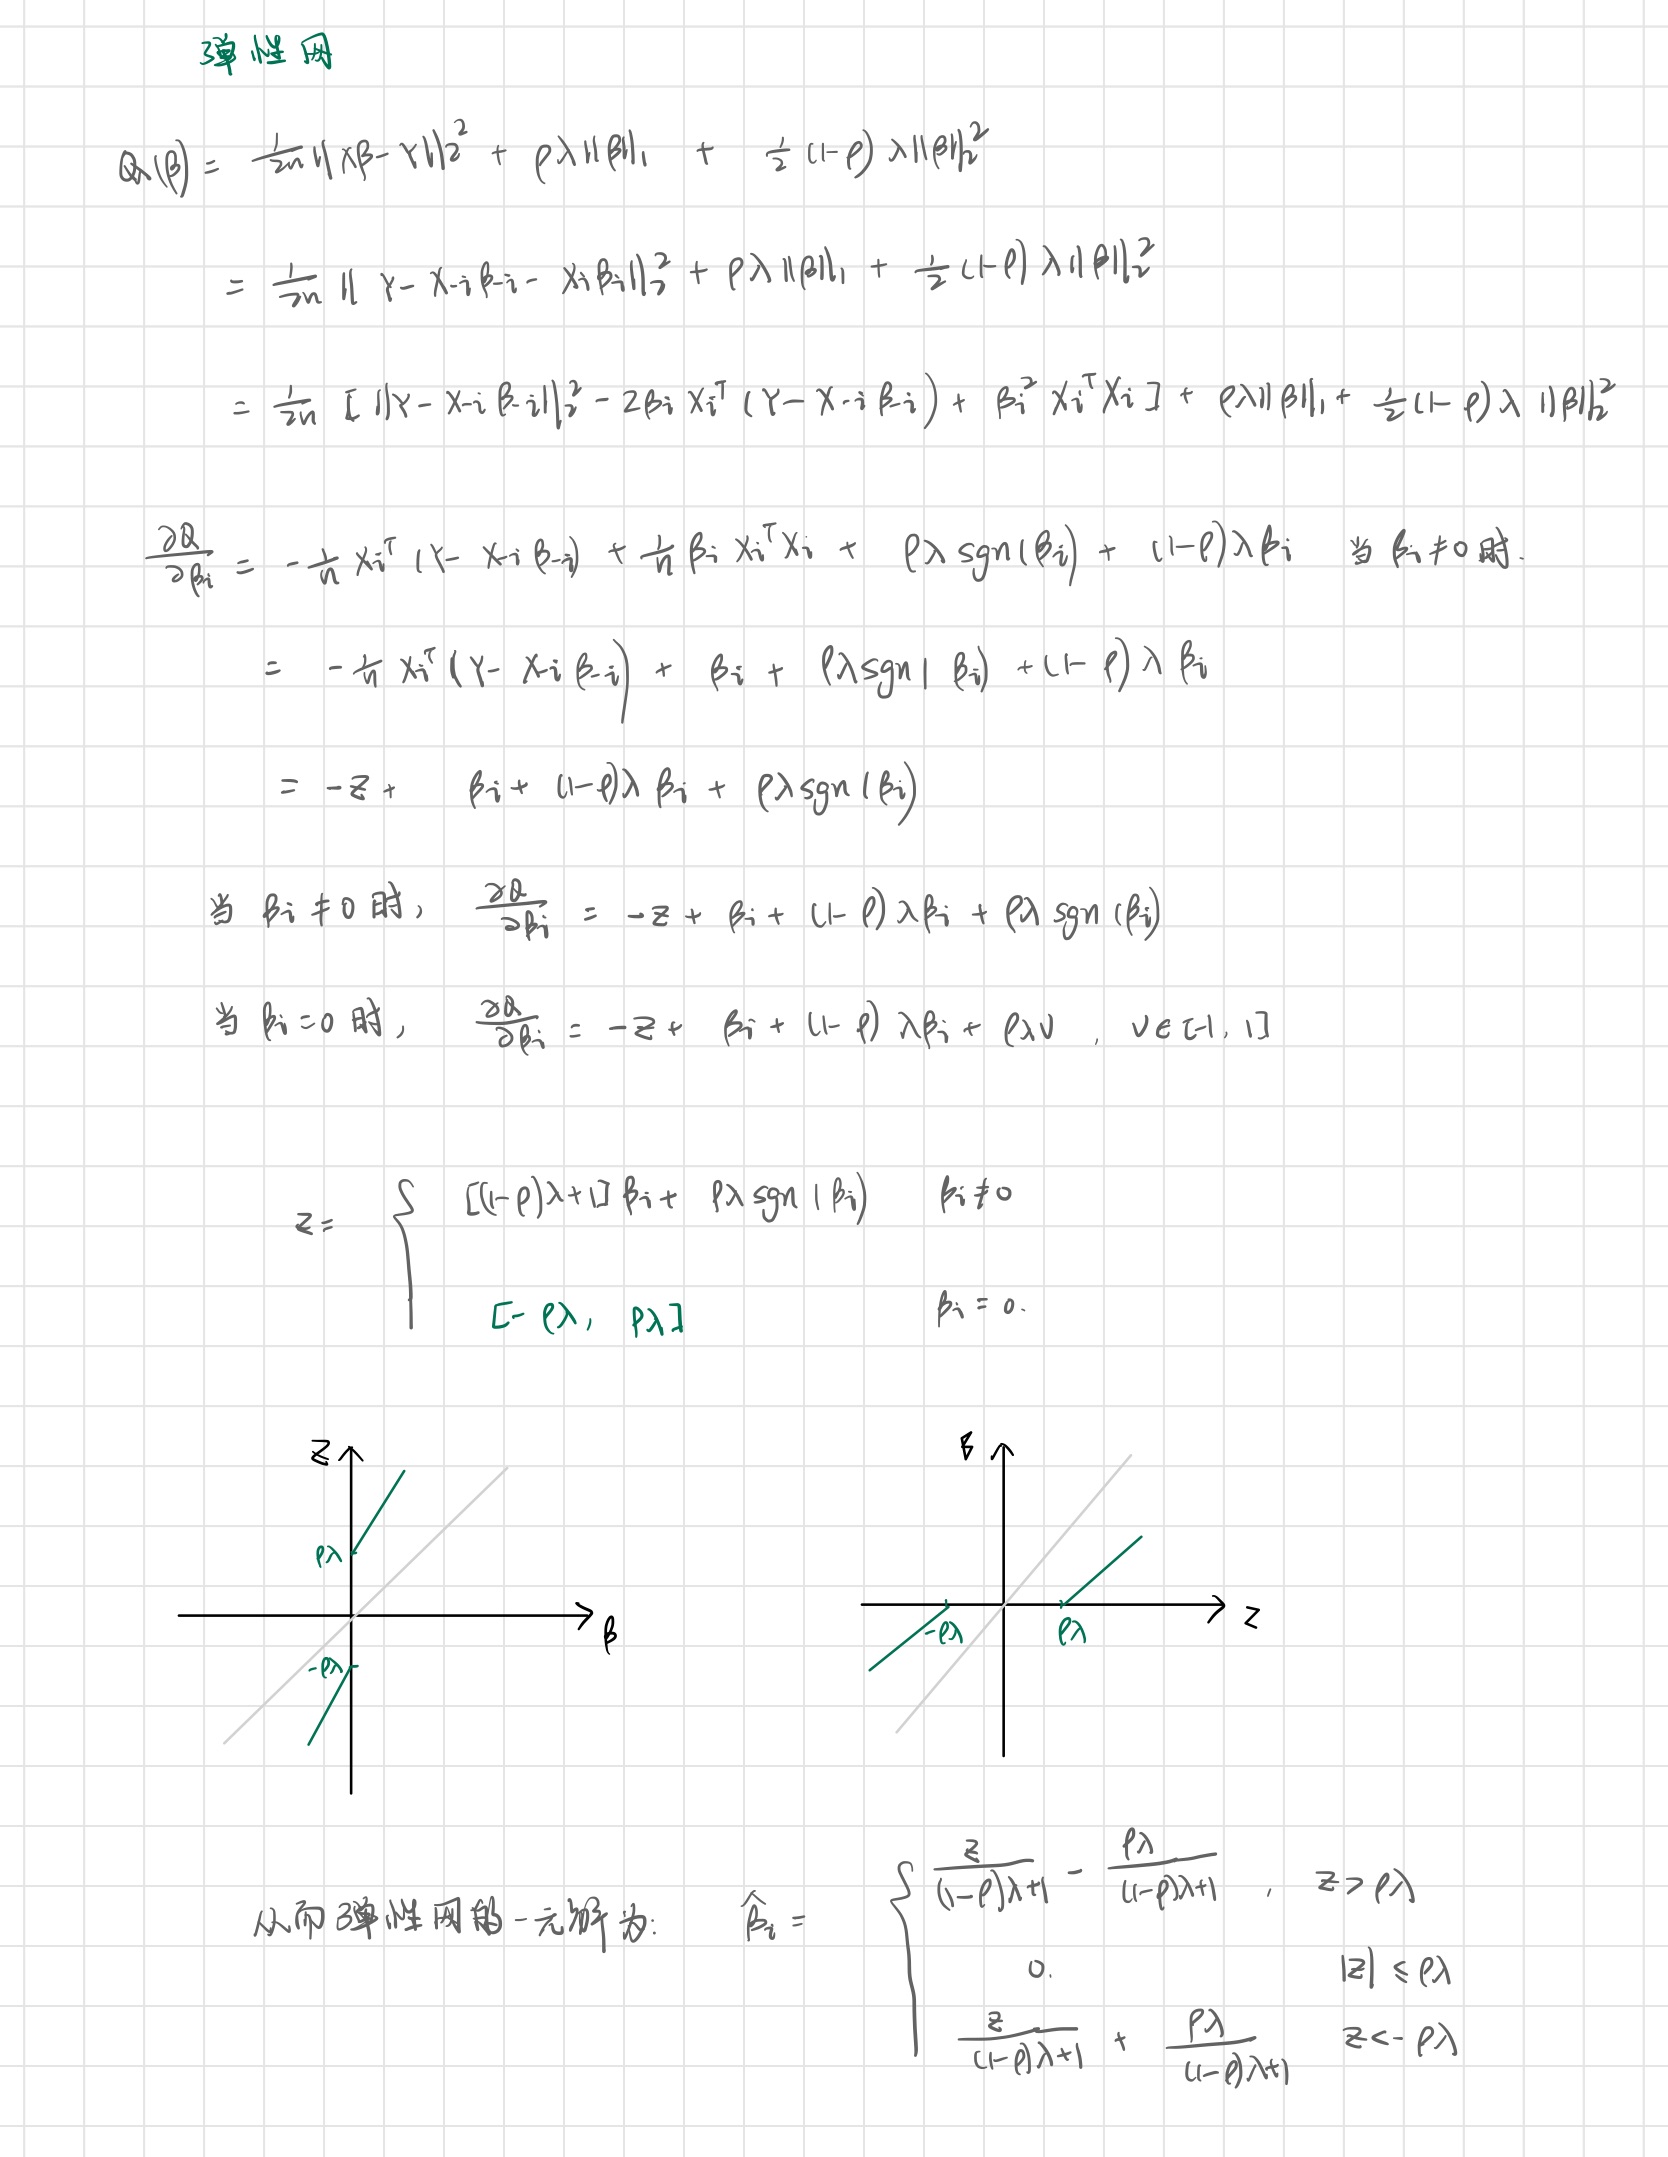 弹性网
Q(β) = 1/2n ||Xβ - Y||₂² + ρλ||β||₁ + 1/2 (1-ρ) λ||β||₂²
= 1/2n || Y - X₋ᵢ β₋ᵢ - Xᵢ βᵢ||₂² + ρλ||β||₁ + 1/2 (1-ρ) λ||β||₂²
= 1/2n [ ||Y - X₋ᵢ β₋ᵢ||₂² - 2βᵢ Xᵢᵀ (Y - X₋ᵢ β₋ᵢ) + βᵢ² Xᵢᵀ Xᵢ ] + ρλ||β||₁ + 1/2 (1-ρ) λ ||β||₂²
∂Q/∂βᵢ = - 1/n Xᵢᵀ (Y - X₋ᵢ β₋ᵢ) + 1/n βᵢ Xᵢᵀ Xᵢ + ρλ sgn(βᵢ) + (1-ρ)λβᵢ 当 βᵢ ≠ 0 时.
= - 1/n Xᵢᵀ (Y - X₋ᵢ β₋ᵢ) + βᵢ + ρλ sgn(βᵢ) + (1-ρ) λ βᵢ
= -z + βᵢ + (1-ρ)λ βᵢ + ρλ sgn(βᵢ)
当 βᵢ ≠ 0 时, ∂Q/∂βᵢ = -z + βᵢ + (1-ρ) λβᵢ + ρλ sgn(βᵢ)
当 βᵢ = 0 时, ∂Q/∂βᵢ = -z + βᵢ + (1-ρ) λβᵢ + ρλv , v∈[-1, 1]
z = { [(1-ρ)λ+1] βᵢ + ρλ sgn(βᵢ) βᵢ ≠ 0
[-ρλ, ρλ] βᵢ = 0.
z
ρλ
-ρλ
β
β
-ρλ
ρλ
z
从而弹性网的一元解为: β̂ᵢ = { z/((1-ρ)λ+1) - ρλ/((1-ρ)λ+1) , z > ρλ
0. |z| ≤ ρλ
z/((1-ρ)λ+1) + ρλ/((1-ρ)λ+1) z < -ρλ